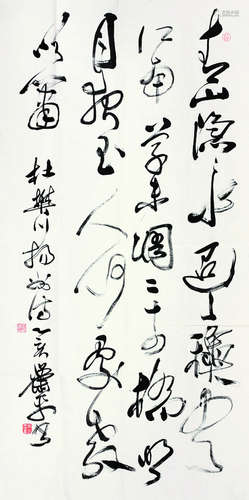 青山隐隐水迢迢穐尽
江南草未凋二十四橋明
月夜玉人何處教
吹簫
杜樊川揚州诗乙亥